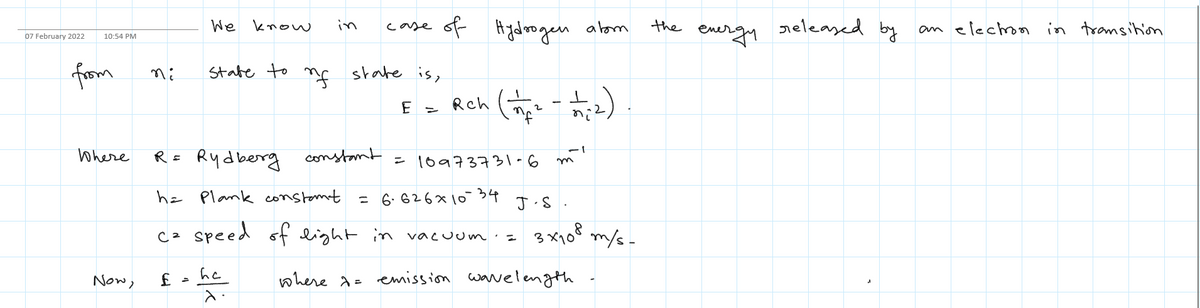 We know in case of Hydrogen atom the energy released by an electron in transition
07 February 2022 10:54 PM
from ni state to nf state is,
E = Rch (1/nf² - 1/ni²).
Where R = Rydberg constant = 10973731.6 m⁻¹
h = Plank constant = 6.626×10⁻³⁴ J.S.
C = speed of light in vacuum. = 3×10⁸ m/s-
Now, E = hc/λ. where λ = emission wavelength.